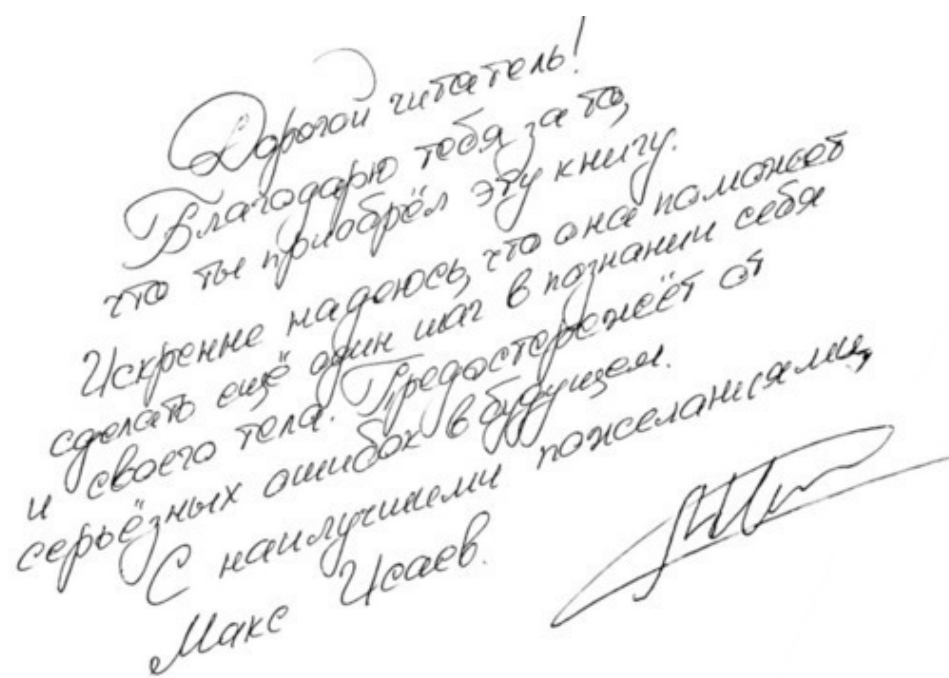 Дорогой читатель!
Благодарю тебя за то,
что ты приобрёл эту книгу.
Искренне надеюсь, что она поможет
сделать ещё один шаг в познании себя
и своего тела. Предостережёт от
серьёзных ошибок в будущем.
С наилучшими пожеланиями,
Макс Исаев.